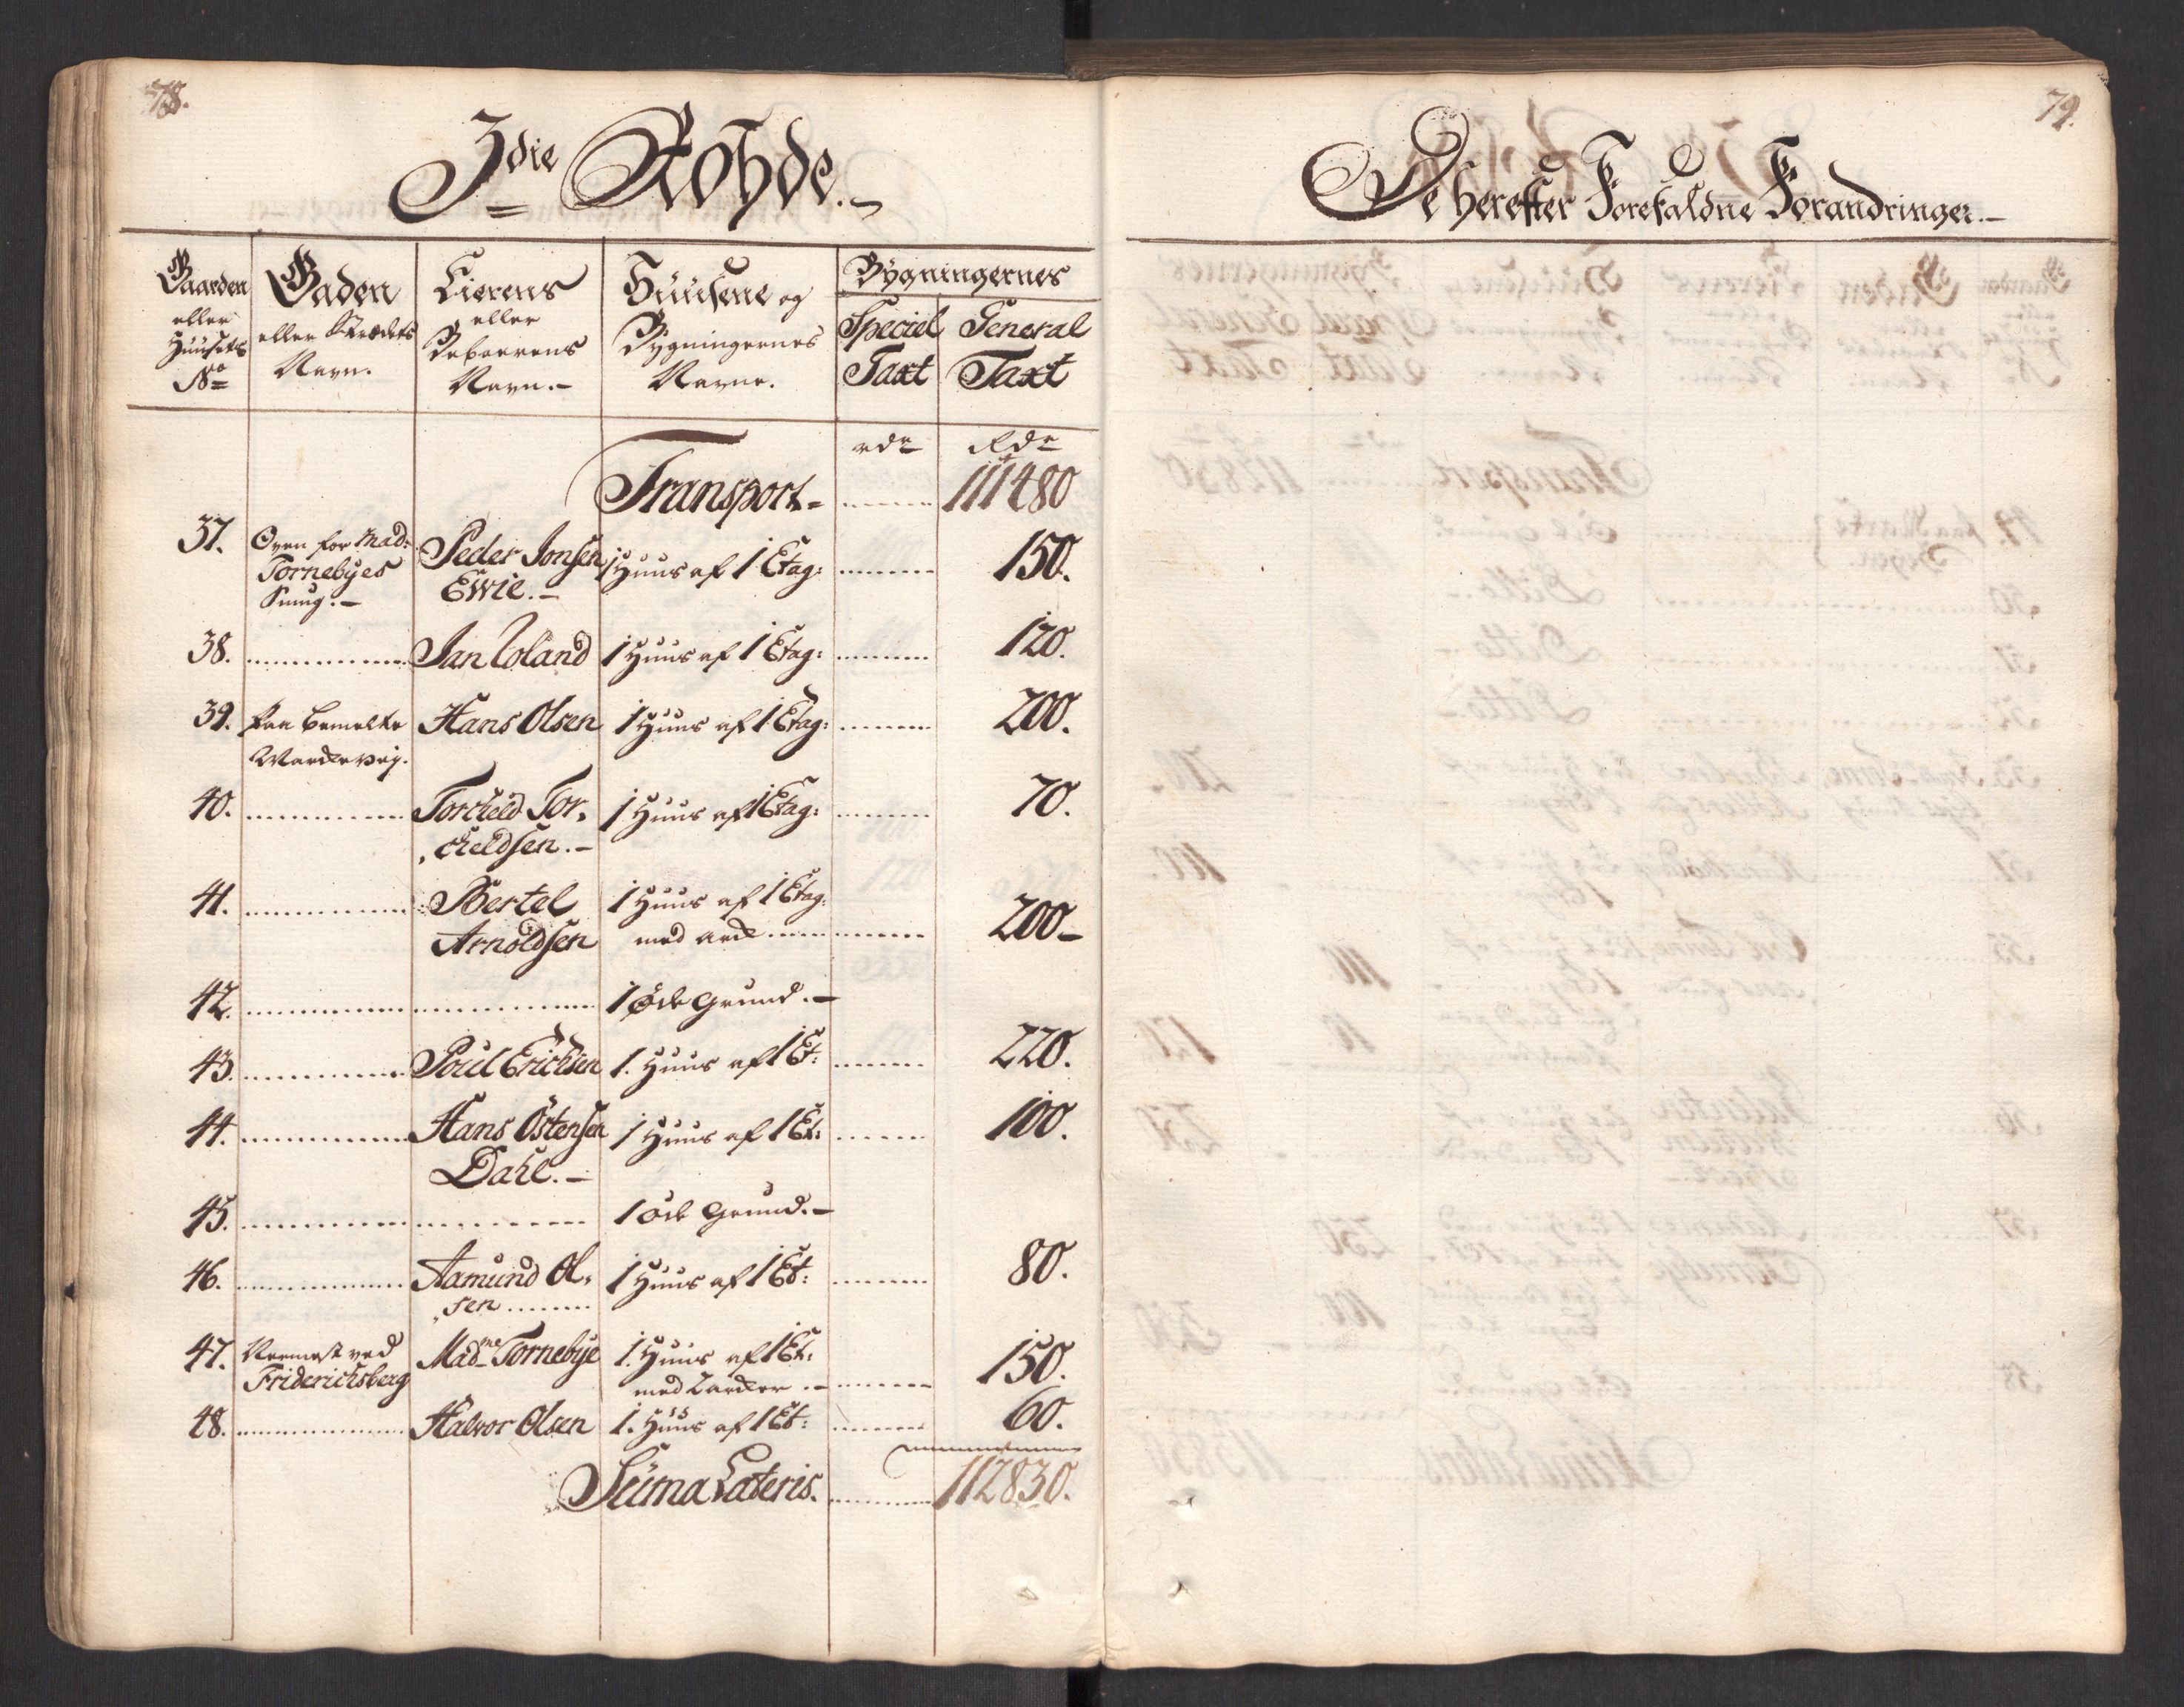 78.
3die Rohde.
Gaarden eller Huusets No | Gaden eller Strædets Navn. | Eierens eller Beboerens Navn. | Huusene og Bygningernes Navne. | Bygningernes Speciel Taxt | General Taxt
rdr Rdr
Transport 111480
37. Oven for Mad: Tornebyes Smug. Peder Jonsen Ewie. 1 Huus af 1 Etag: 150.
38. Jan Coland 1 Huus af 1 Etag: 120.
39. Paa bemelte Wardevej. Hans Olsen 1 Huus af 1 Etag: 200.
40. Torcheld Tor, ,cheldsen. 1 Huus af 1 Etag: 70.
41. Bertel Arnoldsen 1 Huus af 1 Etag: med ark 200
42. 1 øde Grund.
43. Poul Erichsen 1. Huus af 1 Et: 220.
44. Hans Østensen Dahl. 1 Huus af 1 Et: 100.
45. 1 øde Grund.
46. Aamund Ol, ,sen 1 Huus af 1 Et: 80.
47. Nærmest ved Friderichsberg Madme Tornebye 1. Huus af 1 Et: med 2 arker 150.
48. Halvor Olsen 1. Huus af 1 Et: 60.
Suma Lateris. 112830.
79.
De herefter Forefaldne Forandringer.